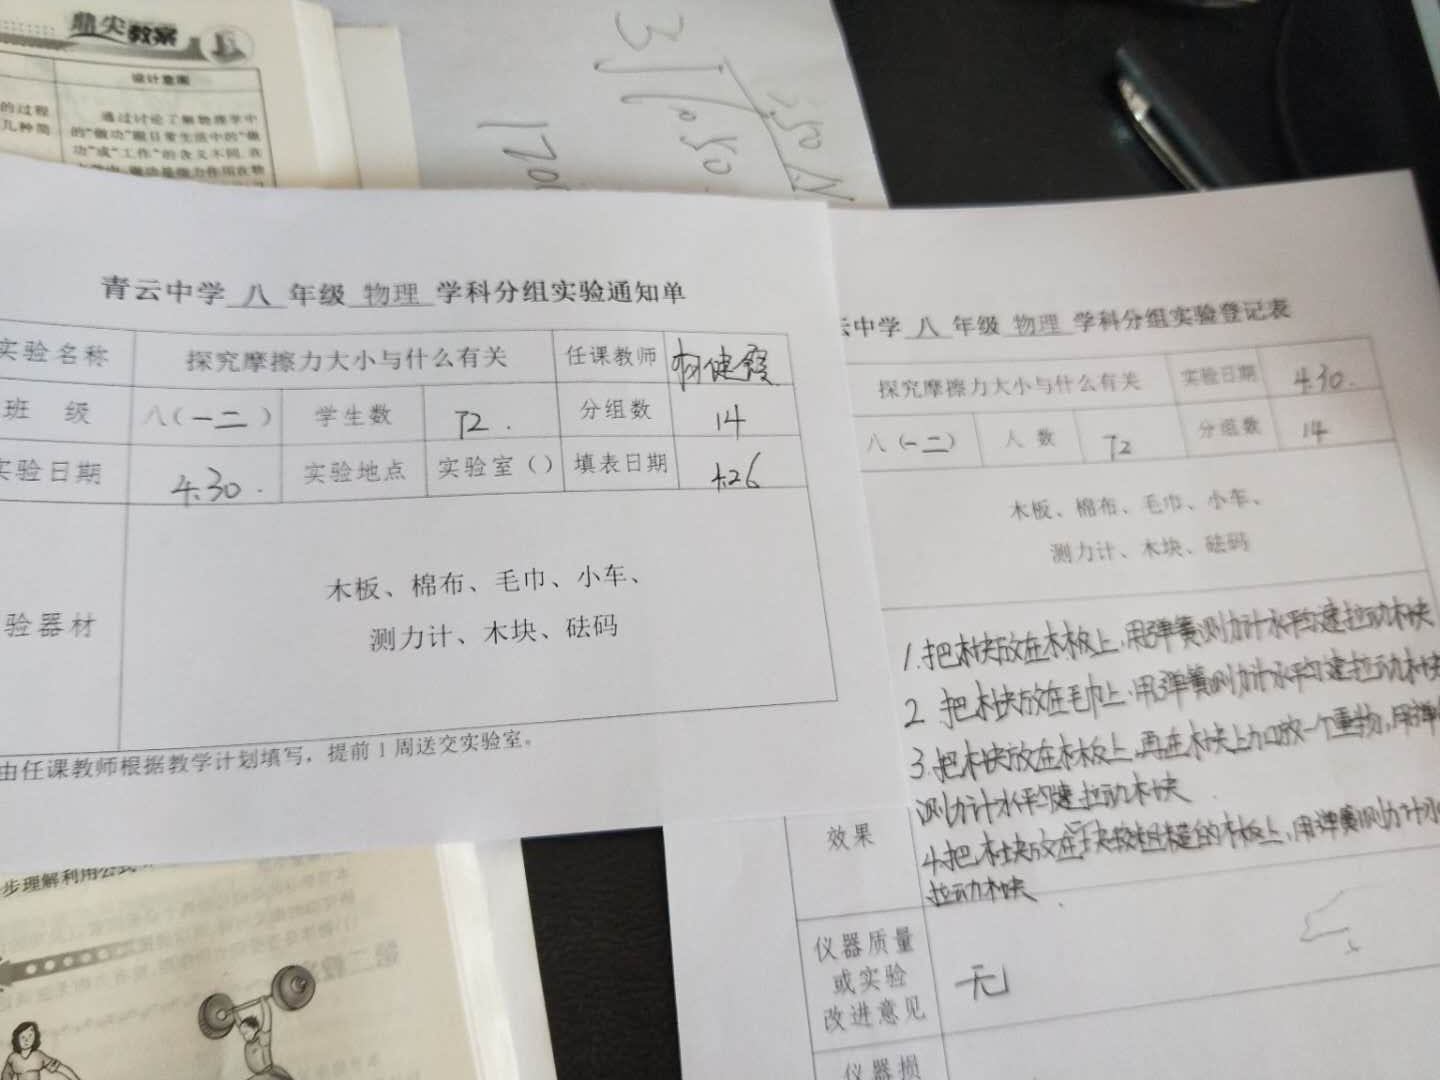 鼎尖教案
设计意图
的过程
几种简
通过讨论了解物理学中
的“做功”跟日常生活中的“做
功”或“工作”的含义不同.在
350
0.50
170
青云中学 八 年级 物理 学科分组实验通知单
实验名称 探究摩擦力大小与什么有关 任课教师
班 级 八(一二) 学生数 72. 分组数 14
实验日期 4.30. 实验地点 实验室() 填表日期 4.26
验器材
木板、棉布、毛巾、小车、
测力计、木块、砝码
由任课教师根据教学计划填写，提前1周送交实验室。
云中学 八 年级 物理 学科分组实验登记表
探究摩擦力大小与什么有关 实验日期 4.30.
八(一二) 人 数 72 分组数 14
木板、棉布、毛巾、小车、
测力计、木块、砝码
1.把木块放在木板上,用弹簧测力计水平匀速拉动木块
2.把木块放在毛巾上,用弹簧测力计水平匀速拉动木块
3.把木块放在木板上,再在木块上加放一个重物,用弹簧
测力计水平匀速拉动木块
效果
4.把木块放在 较粗糙的木板上,用弹簧测力计水
拉动木块
仪器质量
或实验
改进意见
无
仪器损
步理解利用公式